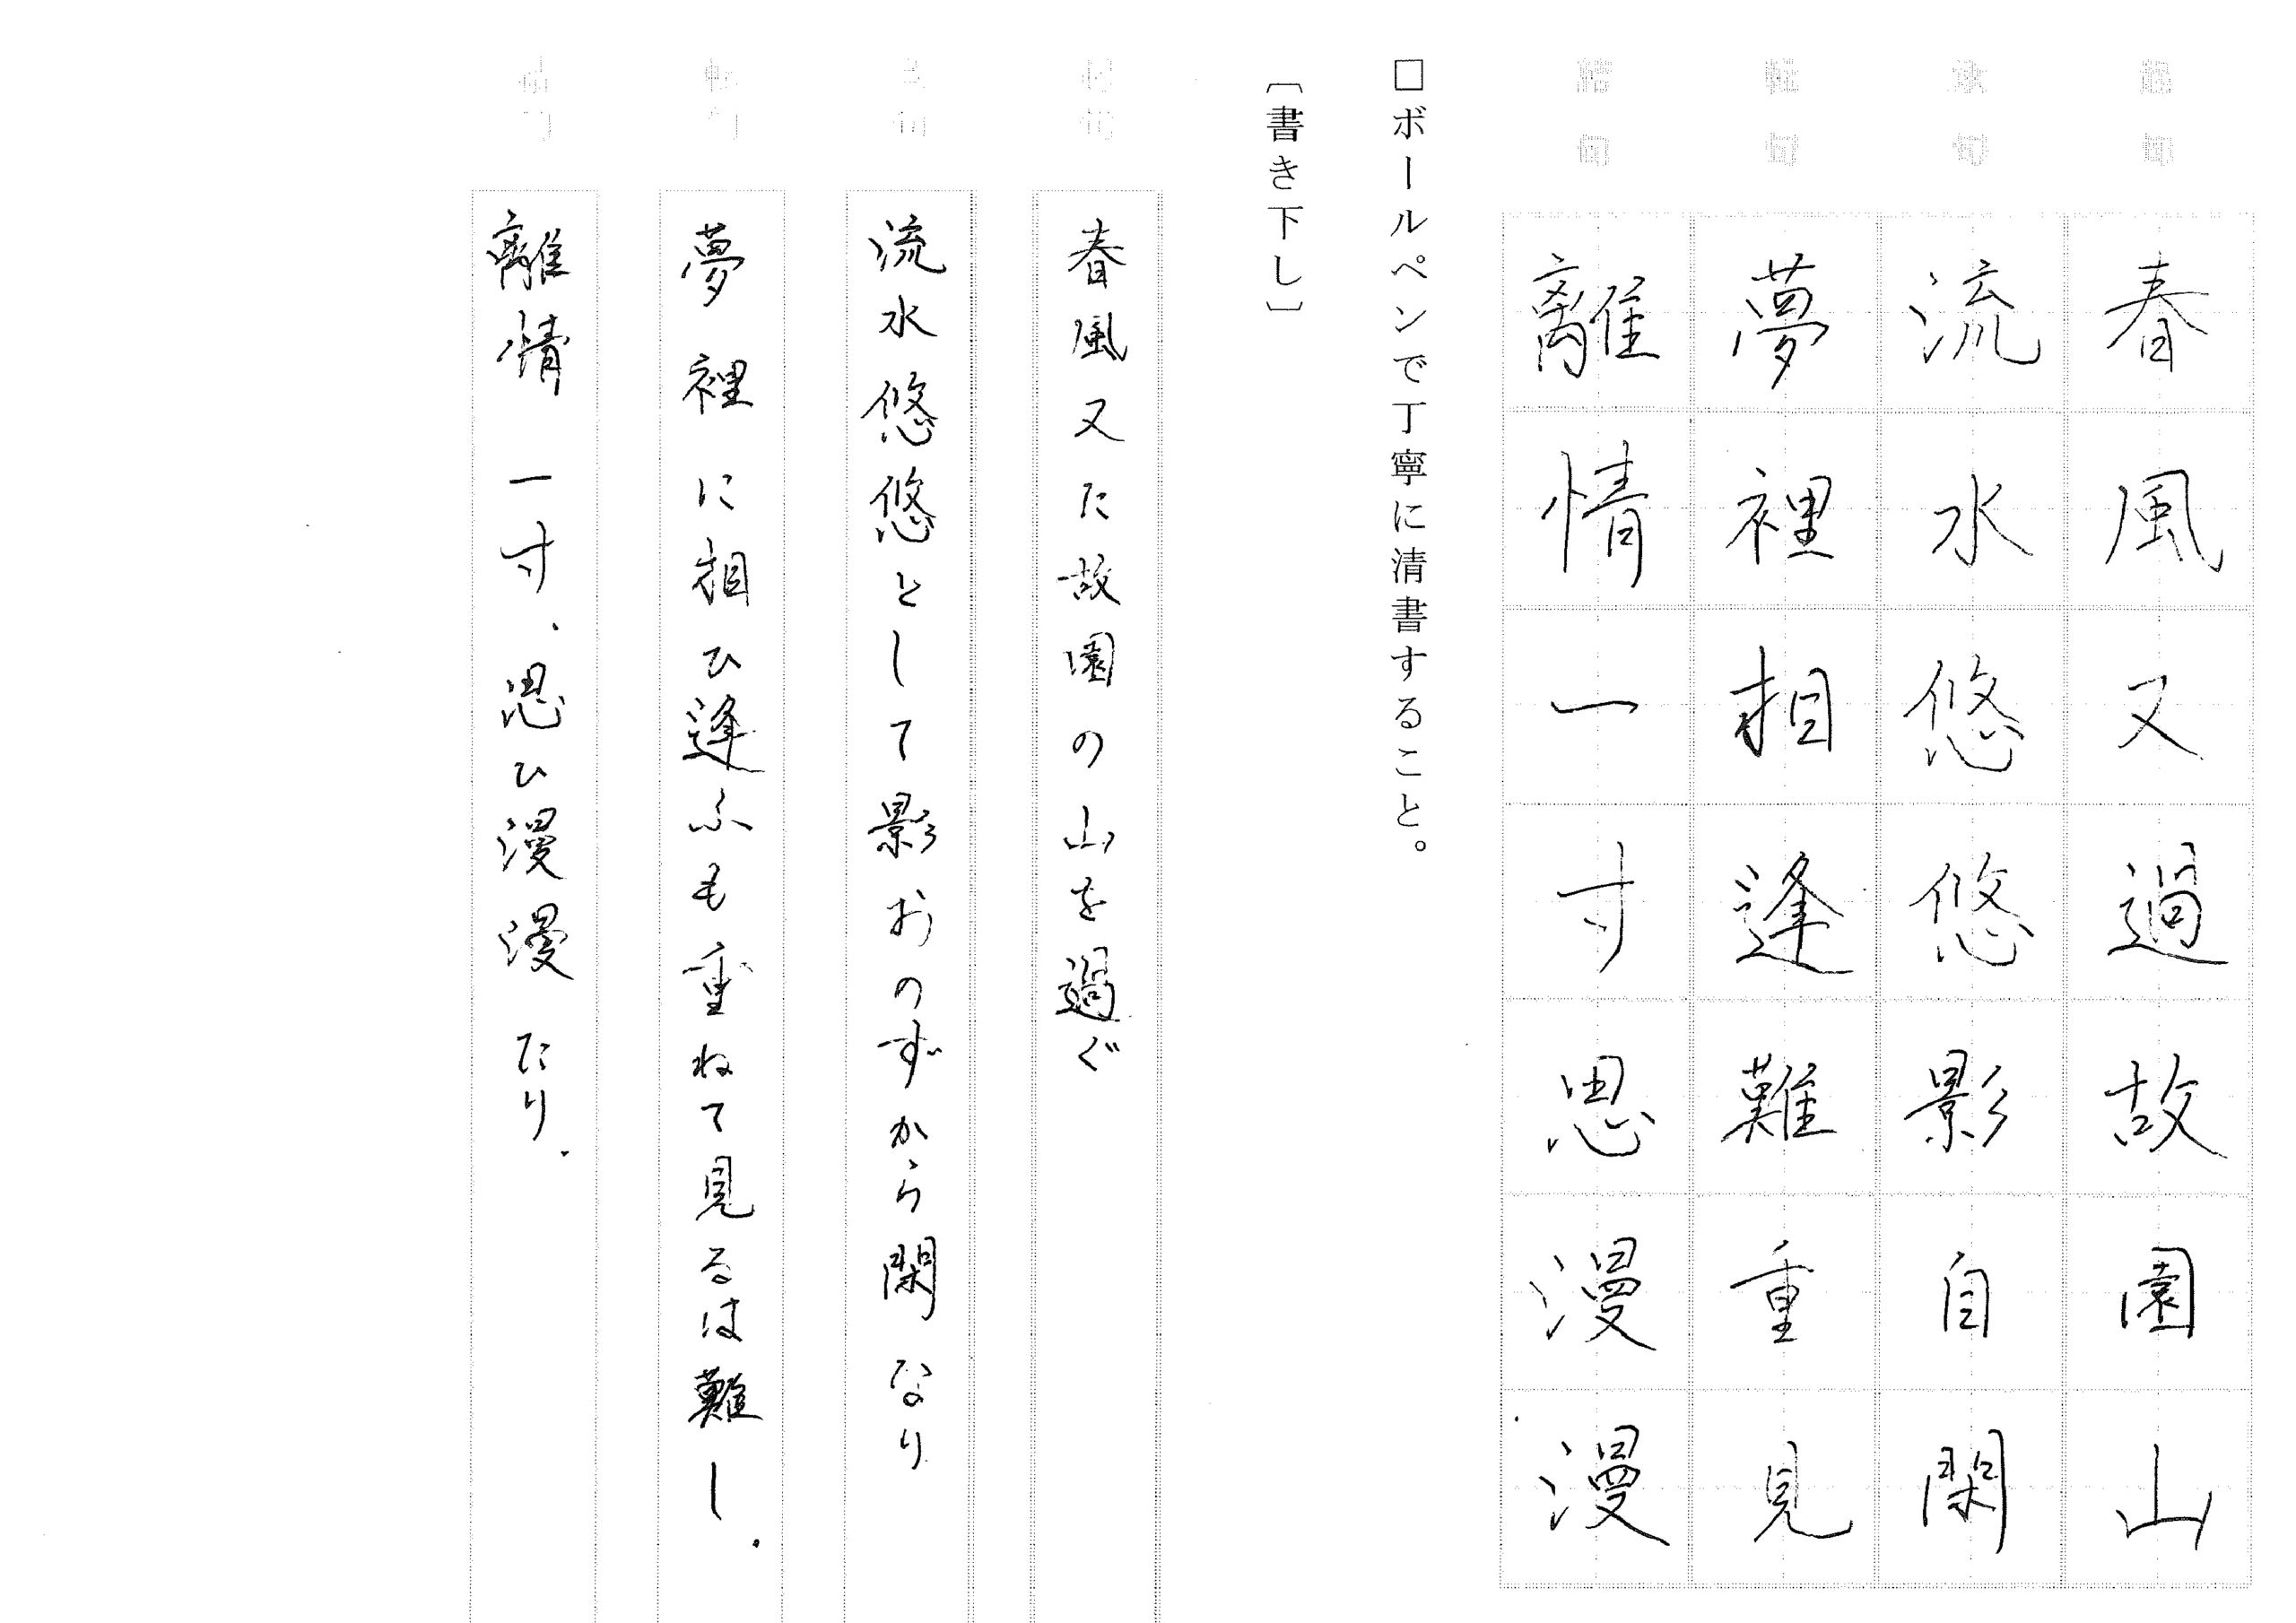 起句 春風又過故園山
承句 流水悠悠影自閑
転句 夢裡相逢難重見
結句 離情一寸思漫漫
□ボールペンで丁寧に清書すること。
〔書き下し〕
起句 春風又た故園の山を過ぐ
承句 流水悠悠として影おのずから閑なり
転句 夢裡に相ひ逢ふも重ねて見るは難し.
結句 離情一寸、思ひ漫漫たり.